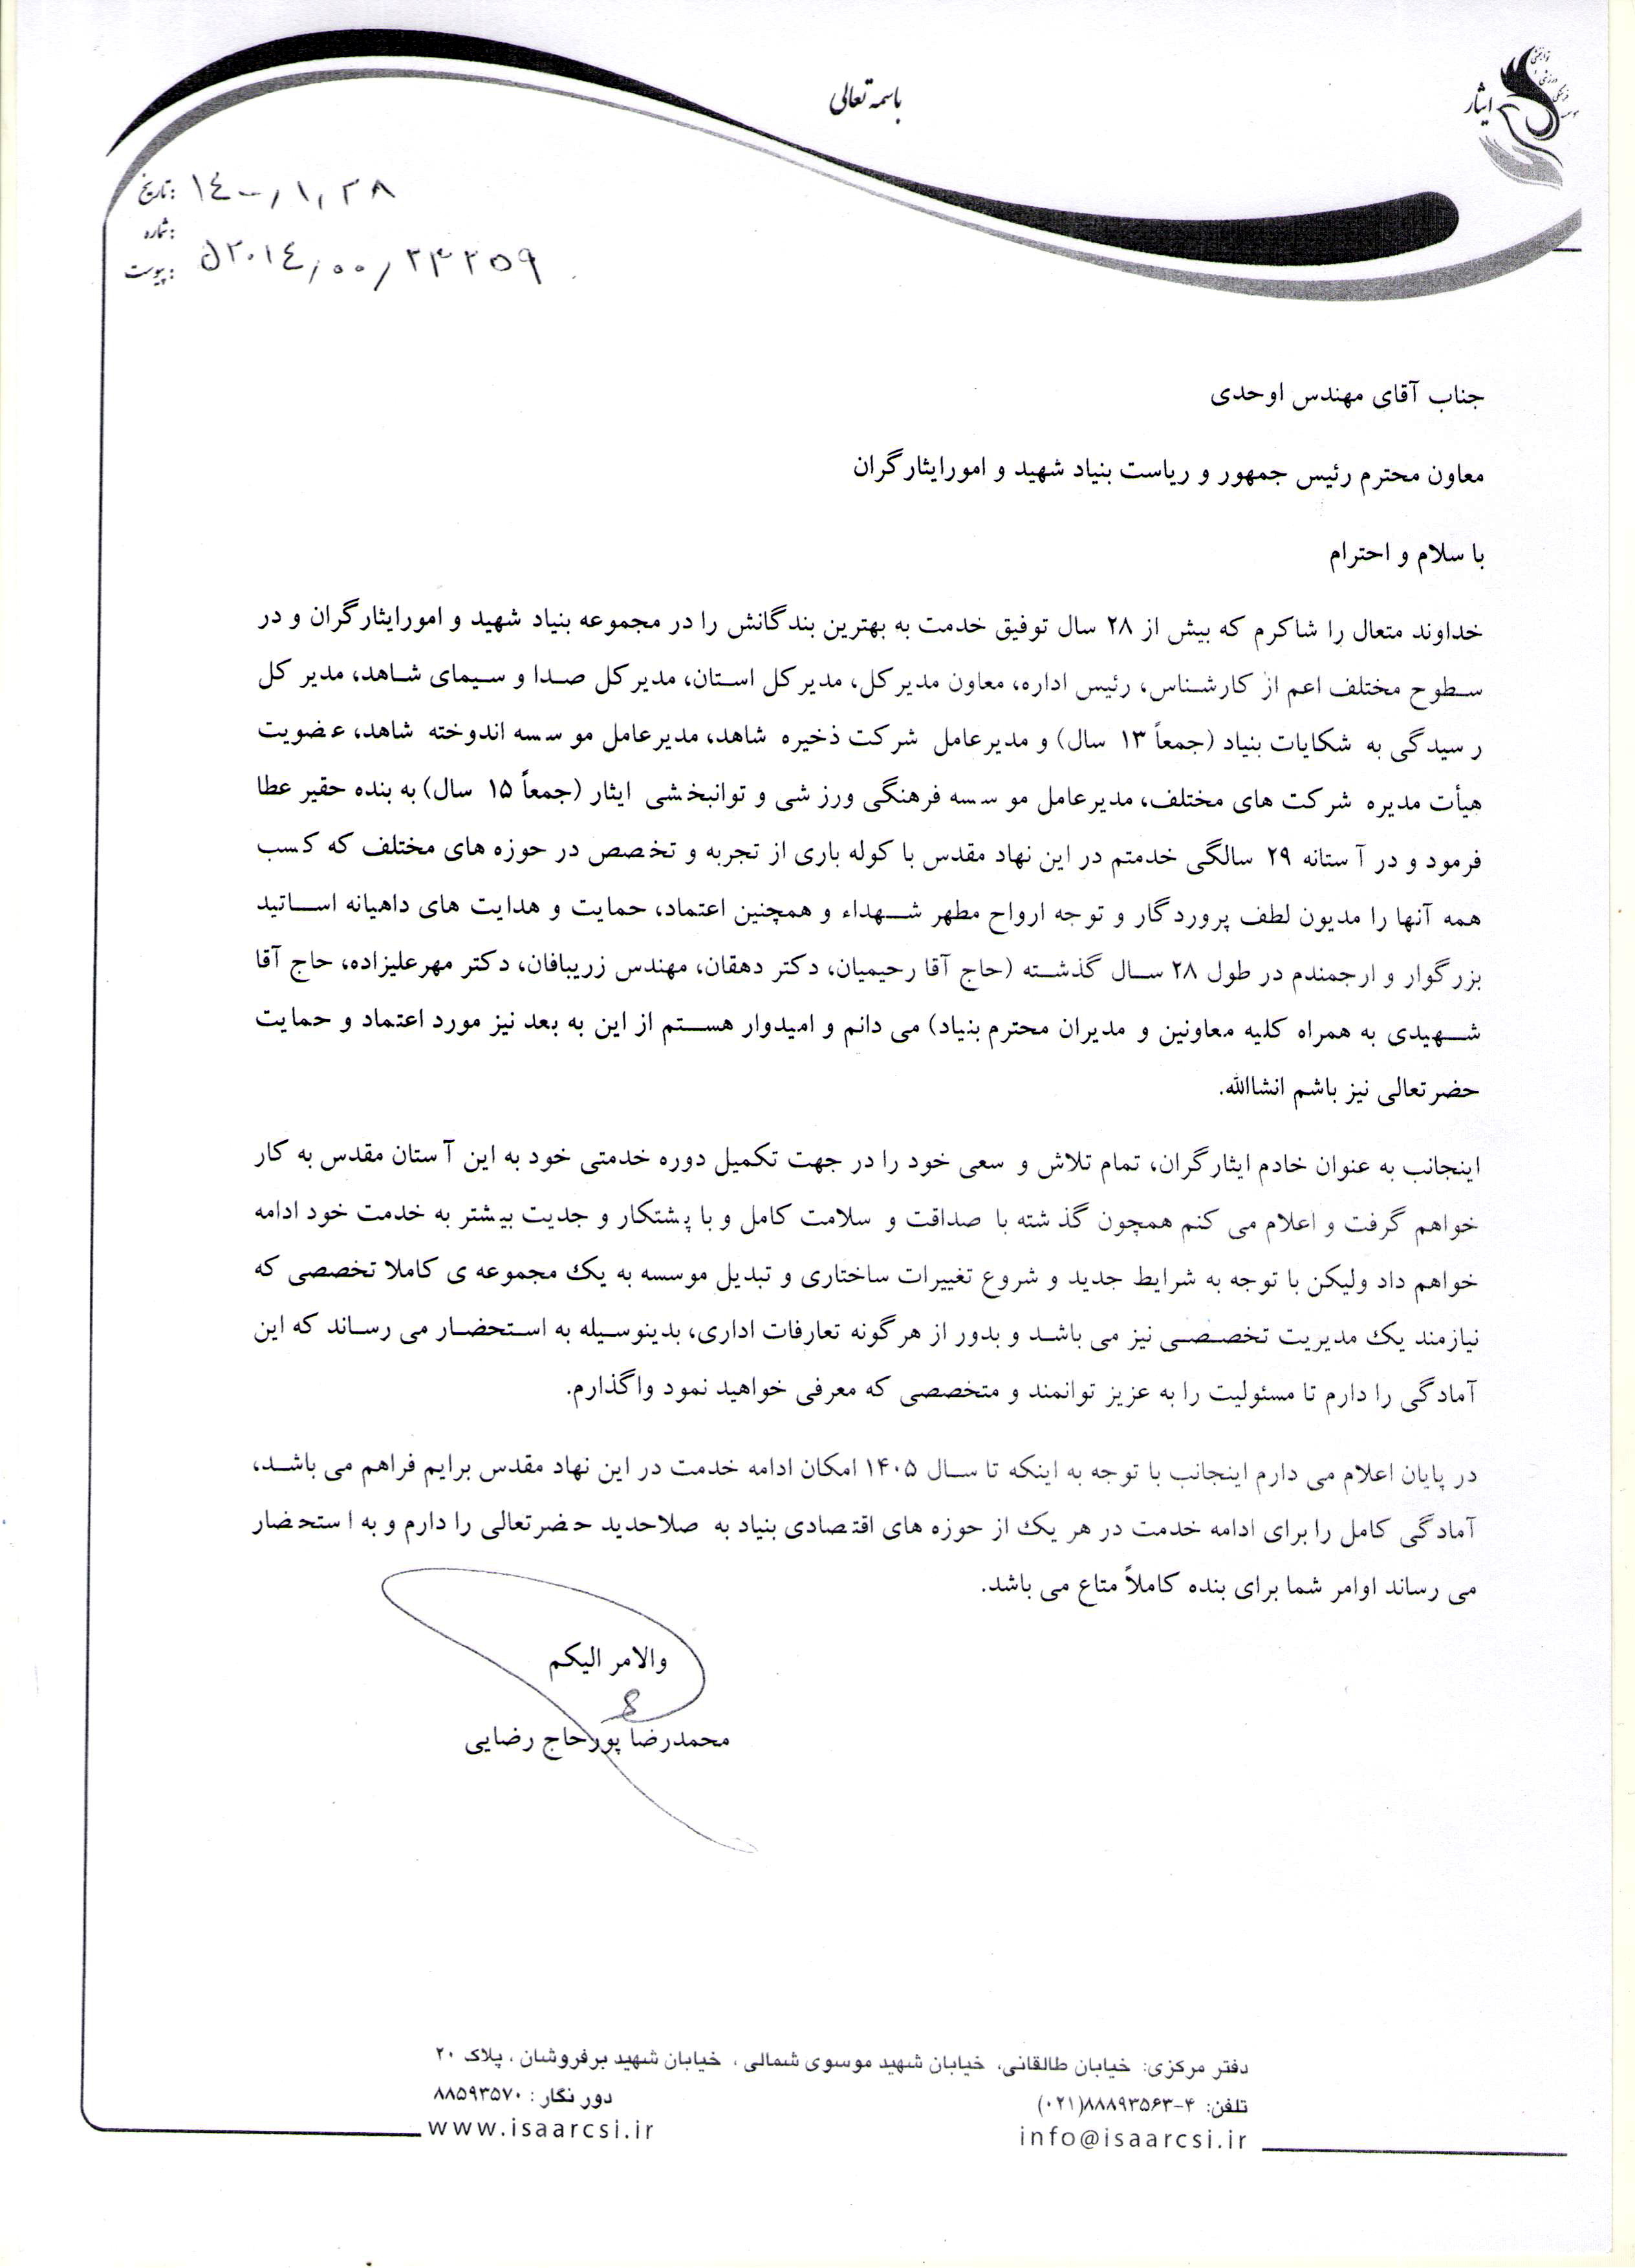 باسمه تعالی
ایثار
تاریخ: ۱۴۰۰/۱/۲۸
شماره:
پیوست: ۵۲۰۱۴/۰۰/۲۳۲۵۹
جناب آقای مهندس اوحدی
معاون محترم رئیس جمهور و ریاست بنیاد شهید و امورایثارگران
با سلام و احترام
خداوند متعال را شاکرم که بیش از ۲۸ سال توفیق خدمت به بهترین بندگانش را در مجموعه بنیاد شهید و امورایثارگران و در
سطوح مختلف اعم از کارشناس، رئیس اداره، معاون مدیرکل، مدیرکل استان، مدیرکل صدا و سیمای شاهد، مدیر کل
رسیدگی به شکایات بنیاد (جمعاً ۱۳ سال) و مدیرعامل شرکت ذخیره شاهد، مدیرعامل موسسه اندوخته شاهد، عضویت
هیأت مدیره شرکت های مختلف، مدیرعامل موسسه فرهنگی ورزشی و توانبخشی ایثار (جمعاً ۱۵ سال) به بنده حقیر عطا
فرمود و در آستانه ۲۹ سالگی خدمتم در این نهاد مقدس با کوله باری از تجربه و تخصص در حوزه های مختلف که کسب
همه آنها را مدیون لطف پروردگار و توجه ارواح مطهر شهداء و همچنین اعتماد، حمایت و هدایت های داهیانه اساتید
بزرگوار و ارجمندم در طول ۲۸ سال گذشته (حاج آقا رحیمیان، دکتر دهقان، مهندس زریبافان، دکتر مهرعلیزاده، حاج آقا
شهیدی به همراه کلیه معاونین و مدیران محترم بنیاد) می دانم و امیدوار هستم از این به بعد نیز مورد اعتماد و حمایت
حضرتعالی نیز باشم انشاالله.
اینجانب به عنوان خادم ایثارگران، تمام تلاش و سعی خود را در جهت تکمیل دوره خدمتی خود به این آستان مقدس به کار
خواهم گرفت و اعلام می کنم همچون گذشته با صداقت و سلامت کامل و با پشتکار و جدیت بیشتر به خدمت خود ادامه
خواهم داد ولیکن با توجه به شرایط جدید و شروع تغییرات ساختاری و تبدیل موسسه به یک مجموعه ی کاملا تخصصی که
نیازمند یک مدیریت تخصصی نیز می باشد و بدور از هرگونه تعارفات اداری، بدینوسیله به استحضار می رساند که این
آمادگی را دارم تا مسئولیت را به عزیز توانمند و متخصصی که معرفی خواهید نمود واگذارم.
در پایان اعلام می دارم اینجانب با توجه به اینکه تا سال ۱۴۰۵ امکان ادامه خدمت در این نهاد مقدس برایم فراهم می باشد،
آمادگی کامل را برای ادامه خدمت در هر یک از حوزه های اقتصادی بنیاد به صلاحدید حضرتعالی را دارم و به استحضار
می رساند اوامر شما برای بنده کاملاً متاع می باشد.
والامر الیکم
محمدرضا پورحاج رضایی
دفتر مرکزی: خیابان طالقانی، خیابان شهید موسوی شمالی، خیابان شهید برفروشان، پلاک ۲۰
تلفن: ۴-۸۸۸۹۳۵۶۳(۰۲۱) دور نگار: ۸۸۵۹۳۵۷۰
info@isaarcsi.ir www.isaarcsi.ir